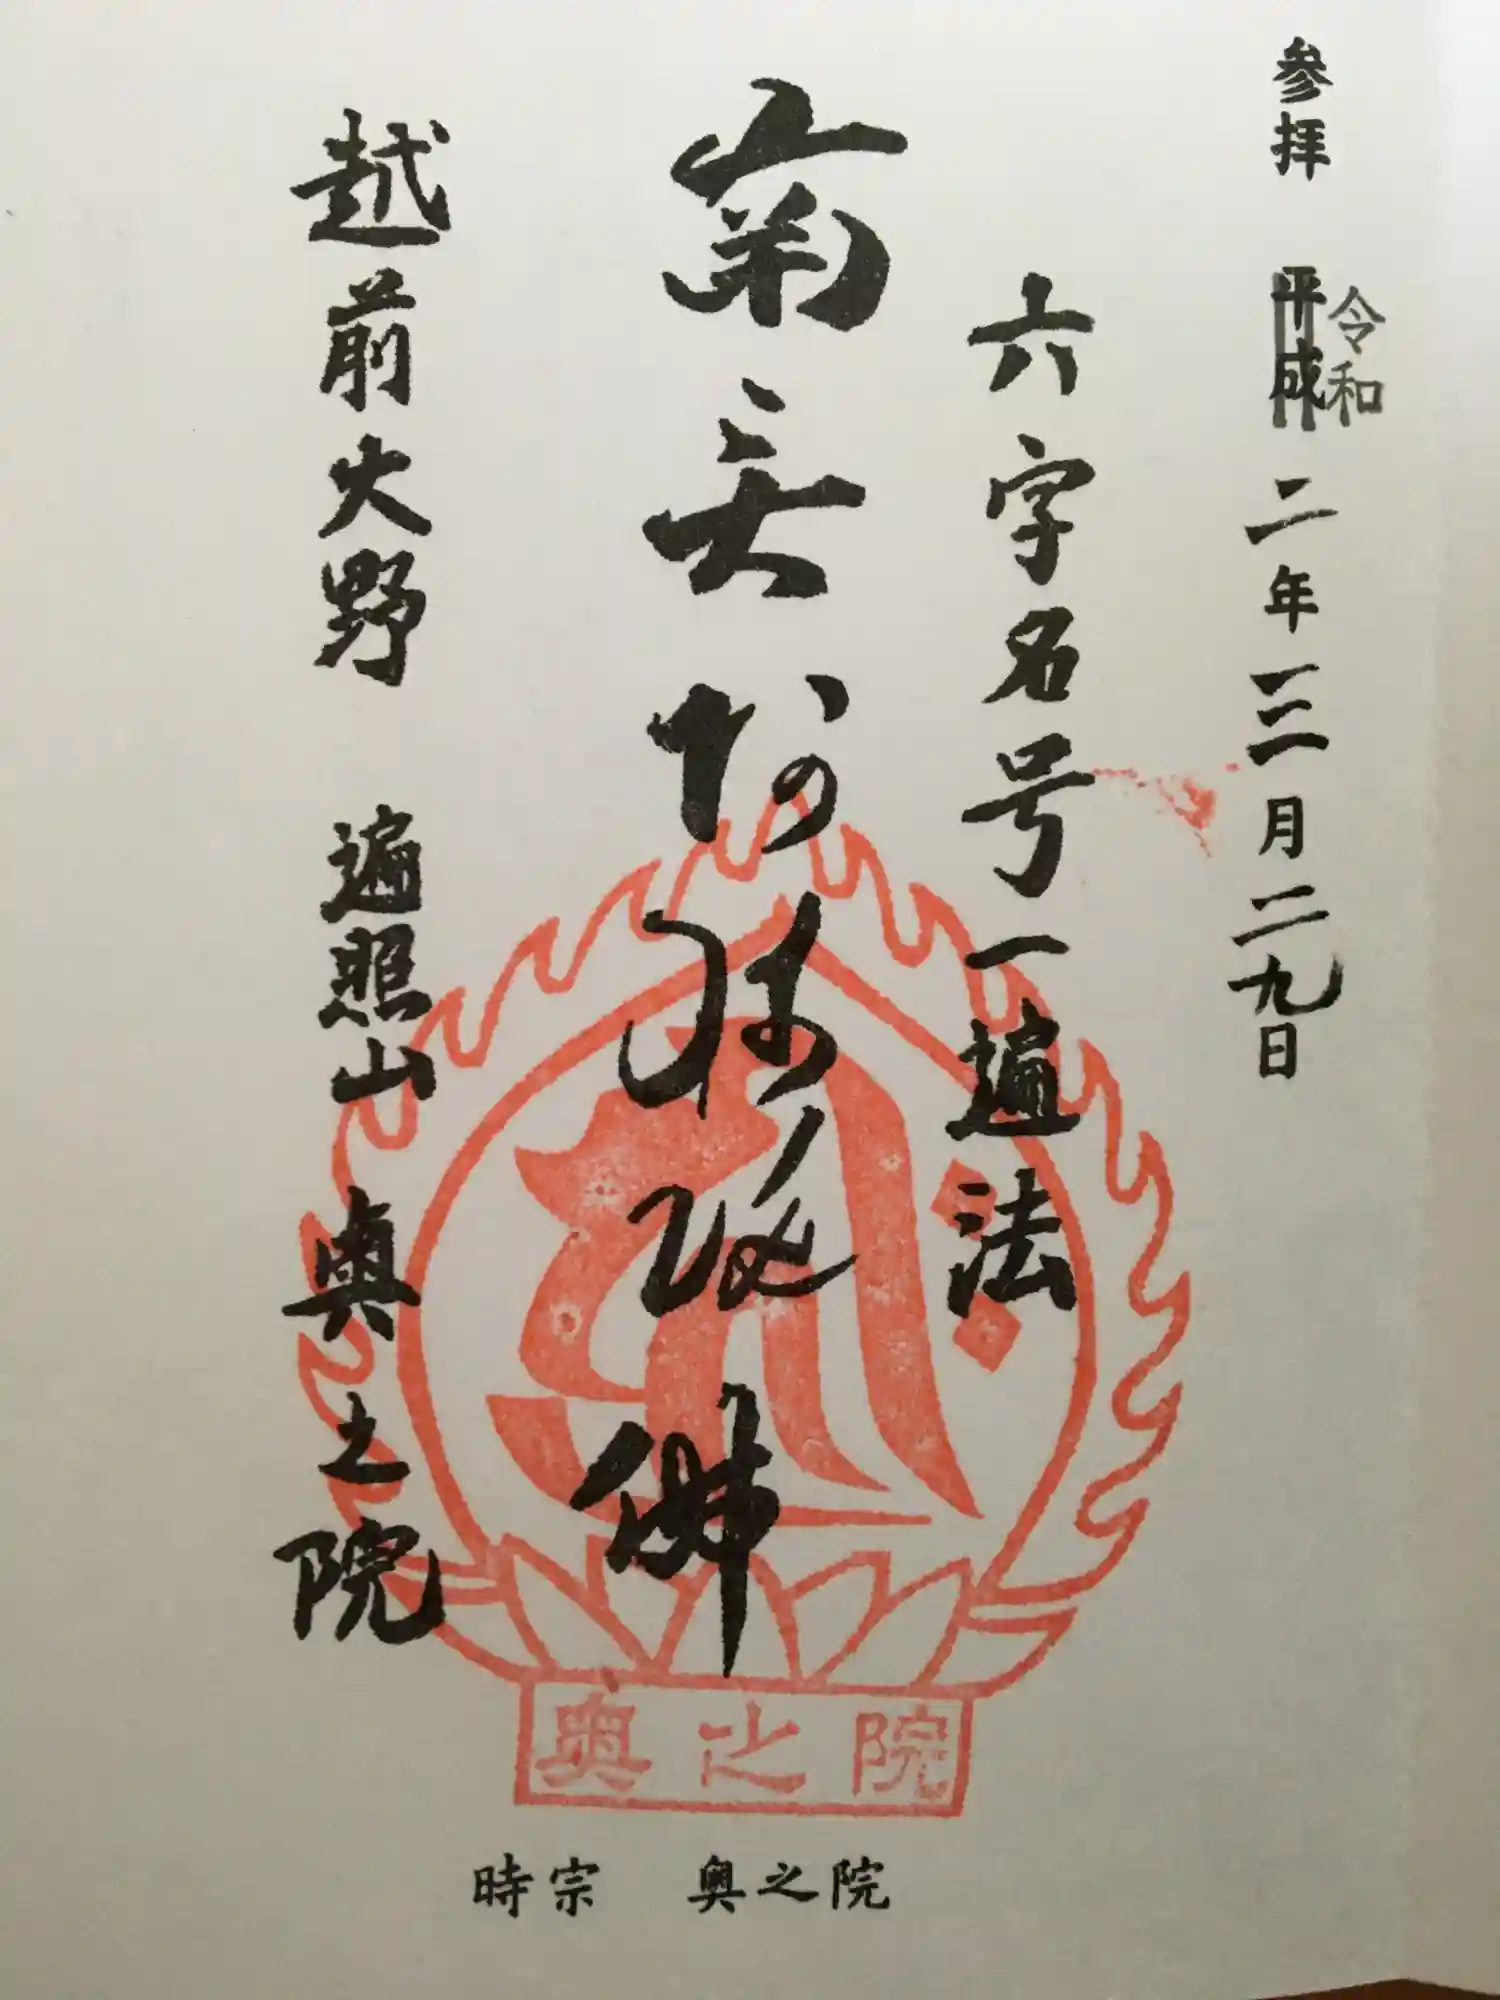 参拝 平成 令和 二年 三月 二九日
六字名号一遍法
南无阿弥陀佛
越前大野 遍照山 奥之院
奥之院
時宗 奥之院